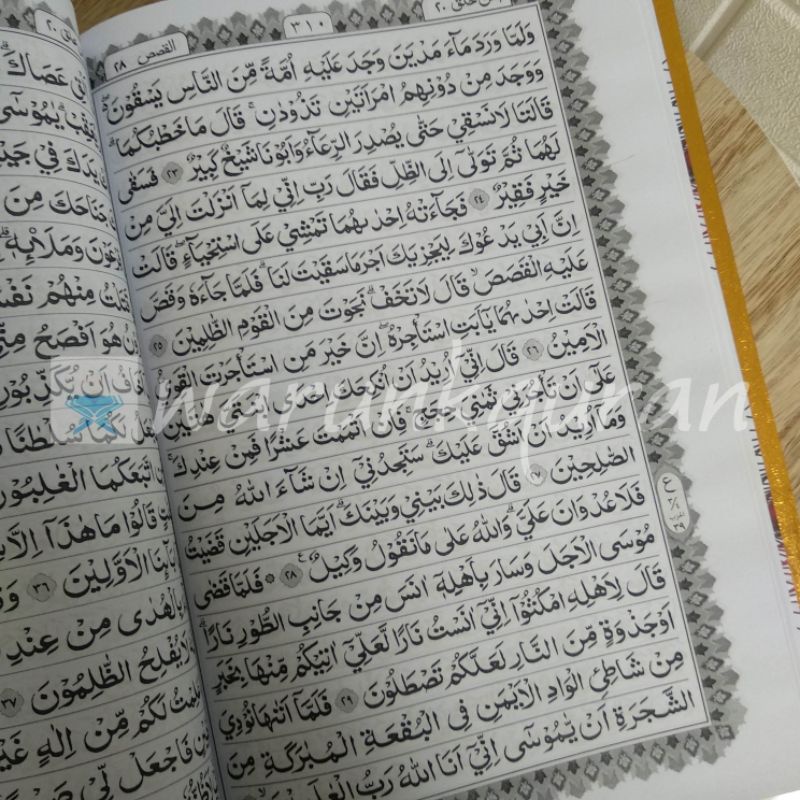 القصص ٢٨
٣١٠
خلق ٢٠
وَلَمَّا وَرَدَ مَآءَ مَدْيَنَ وَجَدَ عَلَيْهِ اُمَّةً مِّنَ النَّاسِ يَسْقُوْنَ
وَوَجَدَ مِنْ دُوْنِهِمُ امْرَاَتَيْنِ تَذُوْدٰنِ ۚ قَالَ مَا خَطْبُكُمَا ؕ
قَالَتَا لَا نَسْقِيْ حَتّٰى يُصْدِرَ الرِّعَآءُ وَاَبُوْنَا شَيْخٌ كَبِيْرٌ ٢٣ فَسَقٰى
لَهُمَا ثُمَّ تَوَلّٰٓى اِلَى الظِّلِّ فَقَالَ رَبِّ اِنِّيْ لِمَآ اَنْزَلْتَ اِلَيَّ مِنْ
خَيْرٍ فَقِيْرٌ ٢٤ فَجَآءَتْهُ اِحْدٰىهُمَا تَمْشِيْ عَلَى اسْتِحْيَآءٍ ۖ قَالَتْ
اِنَّ اَبِيْ يَدْعُوْكَ لِيَجْزِيَكَ اَجْرَ مَا سَقَيْتَ لَنَا ؕ فَلَمَّا جَآءَهٗ وَقَصَّ
عَلَيْهِ الْقَصَصَ ۙ قَالَ لَا تَخَفْ ۗ نَجَوْتَ مِنَ الْقَوْمِ الظّٰلِمِيْنَ ٢٥
قَالَتْ اِحْدٰىهُمَا يٰٓاَبَتِ اسْتَاْجِرْهُ ۖ اِنَّ خَيْرَ مَنِ اسْتَاْجَرْتَ الْقَوِيُّ
الْاَمِيْنُ ٢٦ قَالَ اِنِّيْٓ اُرِيْدُ اَنْ اُنْكِحَكَ اِحْدَى ابْنَتَيَّ هٰتَيْنِ
عَلٰٓى اَنْ تَاْجُرَنِيْ ثَمٰنِيَ حِجَجٍ ۚ فَاِنْ اَتْمَمْتَ عَشْرًا فَمِنْ عِنْدِكَ ۚ
وَمَآ اُرِيْدُ اَنْ اَشُقَّ عَلَيْكَ ؕ سَتَجِدُنِيْٓ اِنْ شَآءَ اللّٰهُ مِنَ
الصّٰلِحِيْنَ ٢٧ قَالَ ذٰلِكَ بَيْنِيْ وَبَيْنَكَ ؕ اَيَّمَا الْاَجَلَيْنِ قَضَيْتُ
فَلَا عُدْوَانَ عَلَيَّ ؕ وَاللّٰهُ عَلٰى مَا نَقُوْلُ وَكِيْلٌ ٢٨ ۞ فَلَمَّا قَضٰى
مُوْسَى الْاَجَلَ وَسَارَ بِاَهْلِهٖٓ اٰنَسَ مِنْ جَانِبِ الطُّوْرِ نَارًا ۚ
قَالَ لِاَهْلِهِ امْكُثُوْٓا اِنِّيْٓ اٰنَسْتُ نَارًا لَّعَلِّيْٓ اٰتِيْكُمْ مِّنْهَا بِخَبَرٍ
اَوْ جَذْوَةٍ مِّنَ النَّارِ لَعَلَّكُمْ تَصْطَلُوْنَ ٢٩ فَلَمَّآ اَتٰىهَا نُوْدِيَ
مِنْ شَاطِئِ الْوَادِ الْاَيْمَنِ فِى الْبُقْعَةِ الْمُبٰرَكَةِ مِنَ
الشَّجَرَةِ اَنْ يّٰمُوْسٰٓى اِنِّيْٓ اَنَا اللّٰهُ رَبُّ الْعٰلَمِيْنَ
ع
warunkquran
عَصَاكَ
يٰمُوْسٰٓى
يَدَكَ فِيْ
جَنَاحَكَ مِنَ
وَمَلَا۟ئِهٖ
قَتَلْتُ مِنْهُمْ
هُوَ اَفْصَحُ
اَنْ
اتَّبَعَكُمَا الْغٰلِبُوْنَ
قَالُوْا مَا هٰذَآ
اٰبَآئِنَا الْاَوَّلِيْنَ ٣٦
بِالْهُدٰى مِنْ عِنْدِ
لَا يُفْلِحُ الظّٰلِمُوْنَ ٣٧
عَلِمْتُ لَكُمْ مِّنْ اِلٰهٍ
فَاجْعَلْ لِّيْ